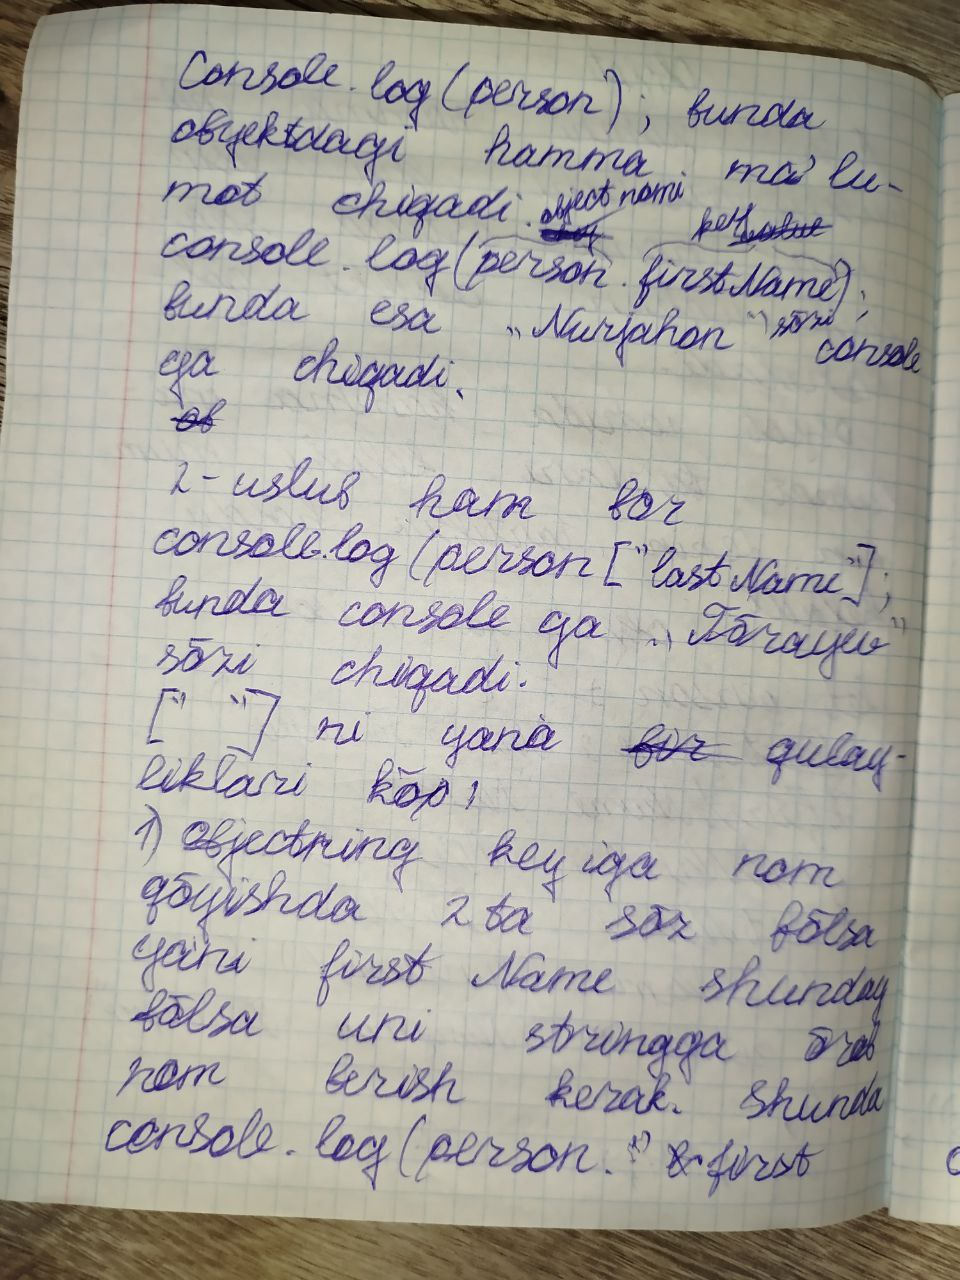 Console.log(person); bunda
obyektdagi hamma ma'lu-
mot chiqadi.
object nomi key
console.log(person.firstName);
bunda esa „Nurjahon" sōzi console
ga chiqadi.
ob
2-uslub ham bor
console.log(person["lastName"];
bunda console ga „Tōrayev"
sōzi chiqadi.
[" "] ni yana bir qulay-
liklari kōp,
1) Objectning key iga nom
qōyishda 2 ta sōz bōlsa
yani first Name shunday
bōlsa uni stringga ōrab
nom berish kerak. Shunda
console.log(person." first